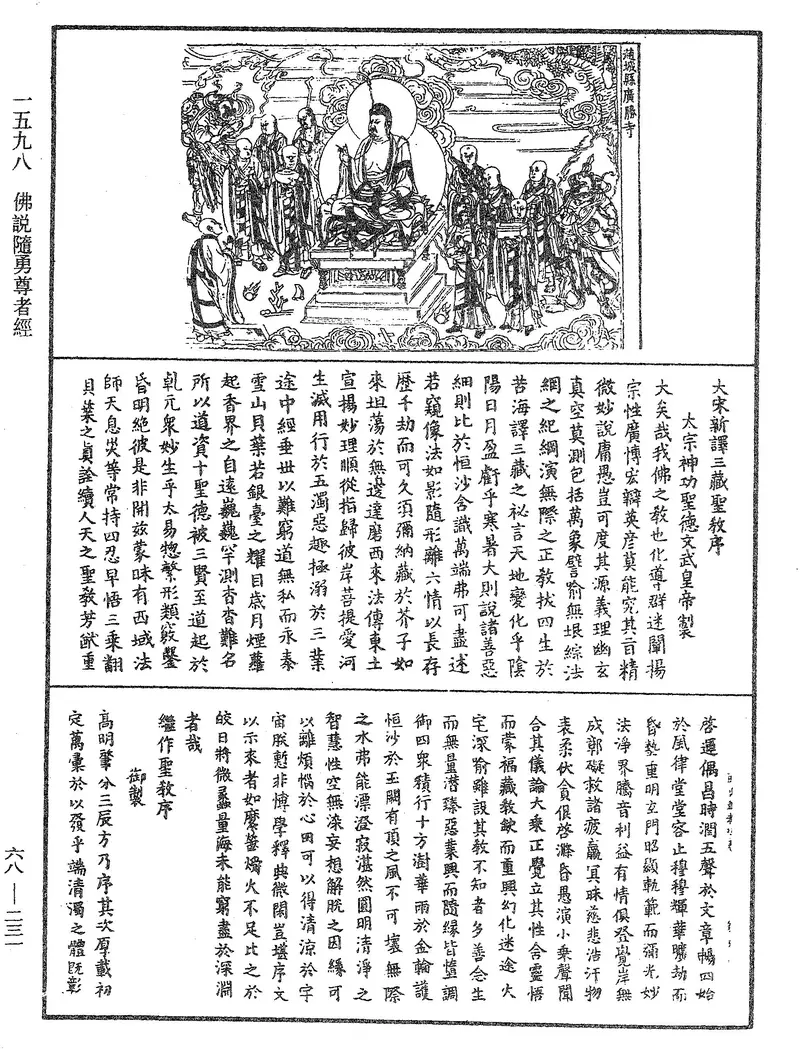 趙城縣廣勝寺
一五九八　佛說隨勇尊者經
大宋新譯三藏聖教序
太宗神功聖德文武皇帝製
大矣哉我佛之教也化導群迷闡揚
宗性廣博宏辯英彥莫能究其旨精
微妙說庸愚豈可度其源義理幽玄
真空莫測包括萬象譬喻無垠綜法
網之紀綱演無際之正教拔四生於
苦海譯三藏之祕言天地變化乎陰
陽日月盈虧乎寒暑大則說諸善惡
細則比於恒沙含識萬端弗可盡述
若窺像法如影隨形離六情以長存
歷千劫而可久須彌納藏於芥子如
來坦蕩於無邊達磨西來法傳東土
宣揚妙理順從指歸彼岸菩提愛河
生滅用行於五濁惡趣極溺於三業
途中經垂世以難窮道無私而永泰
雪山貝葉若銀臺之耀目歲月煙蘿
起香界之自遠巍巍罕測杳杳難名
所以道資十聖德被三賢至道起於
乾元衆妙生乎太易惣繁形類竅鑿
昏明絕彼是非開茲蒙昧有西域法
師天息災等常持四忍早悟三乘翻
貝葉之真詮續人天之聖教芳猷重
啓運偶昌時潤五聲於文章暢四始
於風律堂堂容止穆穆輝華曠劫而
昏蟄重明玄門昭顯軌範而彌光妙
法淨界騰音利益有情俱登覺岸無
成鄣礙救諸疲羸冥昧慈悲浩汗物
表柔伏貪佷啓滌昏愚演小乘聲聞
合其儀論大乘正覺立其性含靈悟
而蒙福藏教缺而重興幻化迷途火
宅深喻雖設其教不知者多善念生
而無量潛臻惡業興而隨緣皆墮調
御四衆積行十方澍華雨於金輪護
恒沙於玉闕有頂之風不可壞無際
之水弗能漂澄寂湛然圓明清淨之
智慧性空無染妄想解脫之因緣可
以離煩惱於心田可以得清涼於宇
宙朕慙非博學釋典微閑豈堪序文
以示來者如縻螢爝火不足比之於
皎日將微蠡量海未能窮盡於深淵
者哉
繼作聖教序
御製
高明肇分三辰方乃序其次厚載初
定萬彙於以發乎端清濁之體既彰
六八—二三一